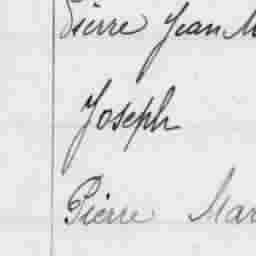 Pierre Jean M
Joseph
Pierre Mar